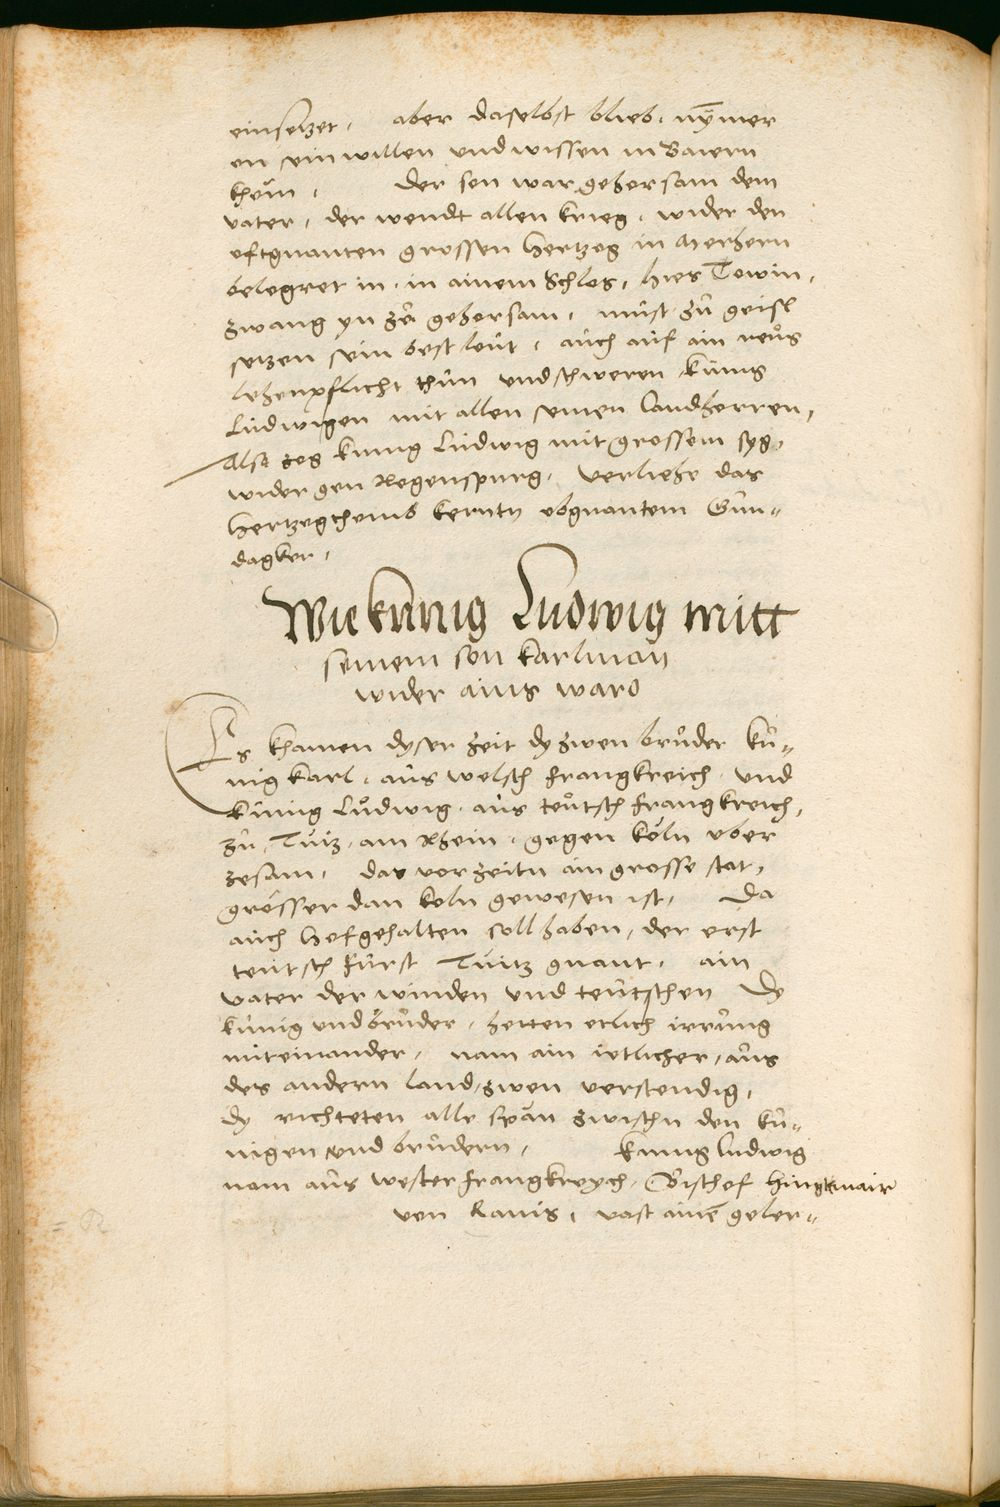 einsetzet, aber daselbst blieb, nymer
on sein willen und wissen in Baiern
khem, Der son war gehorsam dem
vater, der wendt allen krieg, wider den
oftgnanten grossen Hertzog in Merhern
belegret in, in ainem Schlos, hies Towin,
zwang yn zů gehorsam, must zů geisl
setzen sein best leut, auch auf ain neus
lehenpflicht thun und schweren, künig
Ludwigen mit allen seinen landherren,
Also zog kunig Ludwig mit grossem syg,
wider gen Regenspurg, verliehe das
Hertzogthumb kerntn obgnantem Gun-
dagker,
Wie künig Ludwig mitt
seinem son karlman
wider ains ward
Es khamen dyser zeit dy zwen brůder kü-
nig karl, aus welsch frangkreich, und
künig Lůdwig, aus teutsch frangkreich,
zu, Tuiz, am Rhein, gegen köln uber
zesam, das vor zeitn ain grosse stat,
grösser dan koln gewesen ist, Da
auch hof gehalten soll haben, der erst
teutsch fürst Tuitz gnant, ain
vater der winden und teutschen Dy
künig und brůder, hetten etlich irrung
miteinander, nam ain ietlicher, aus
des andern land, zwen verstendig,
dy richteten alle span zwischn den kü-
nigen und brudern, kunig ludwig
nam aus wester frangkreych, Bischof Hingkmair
von Rauis, vast ainē geler-